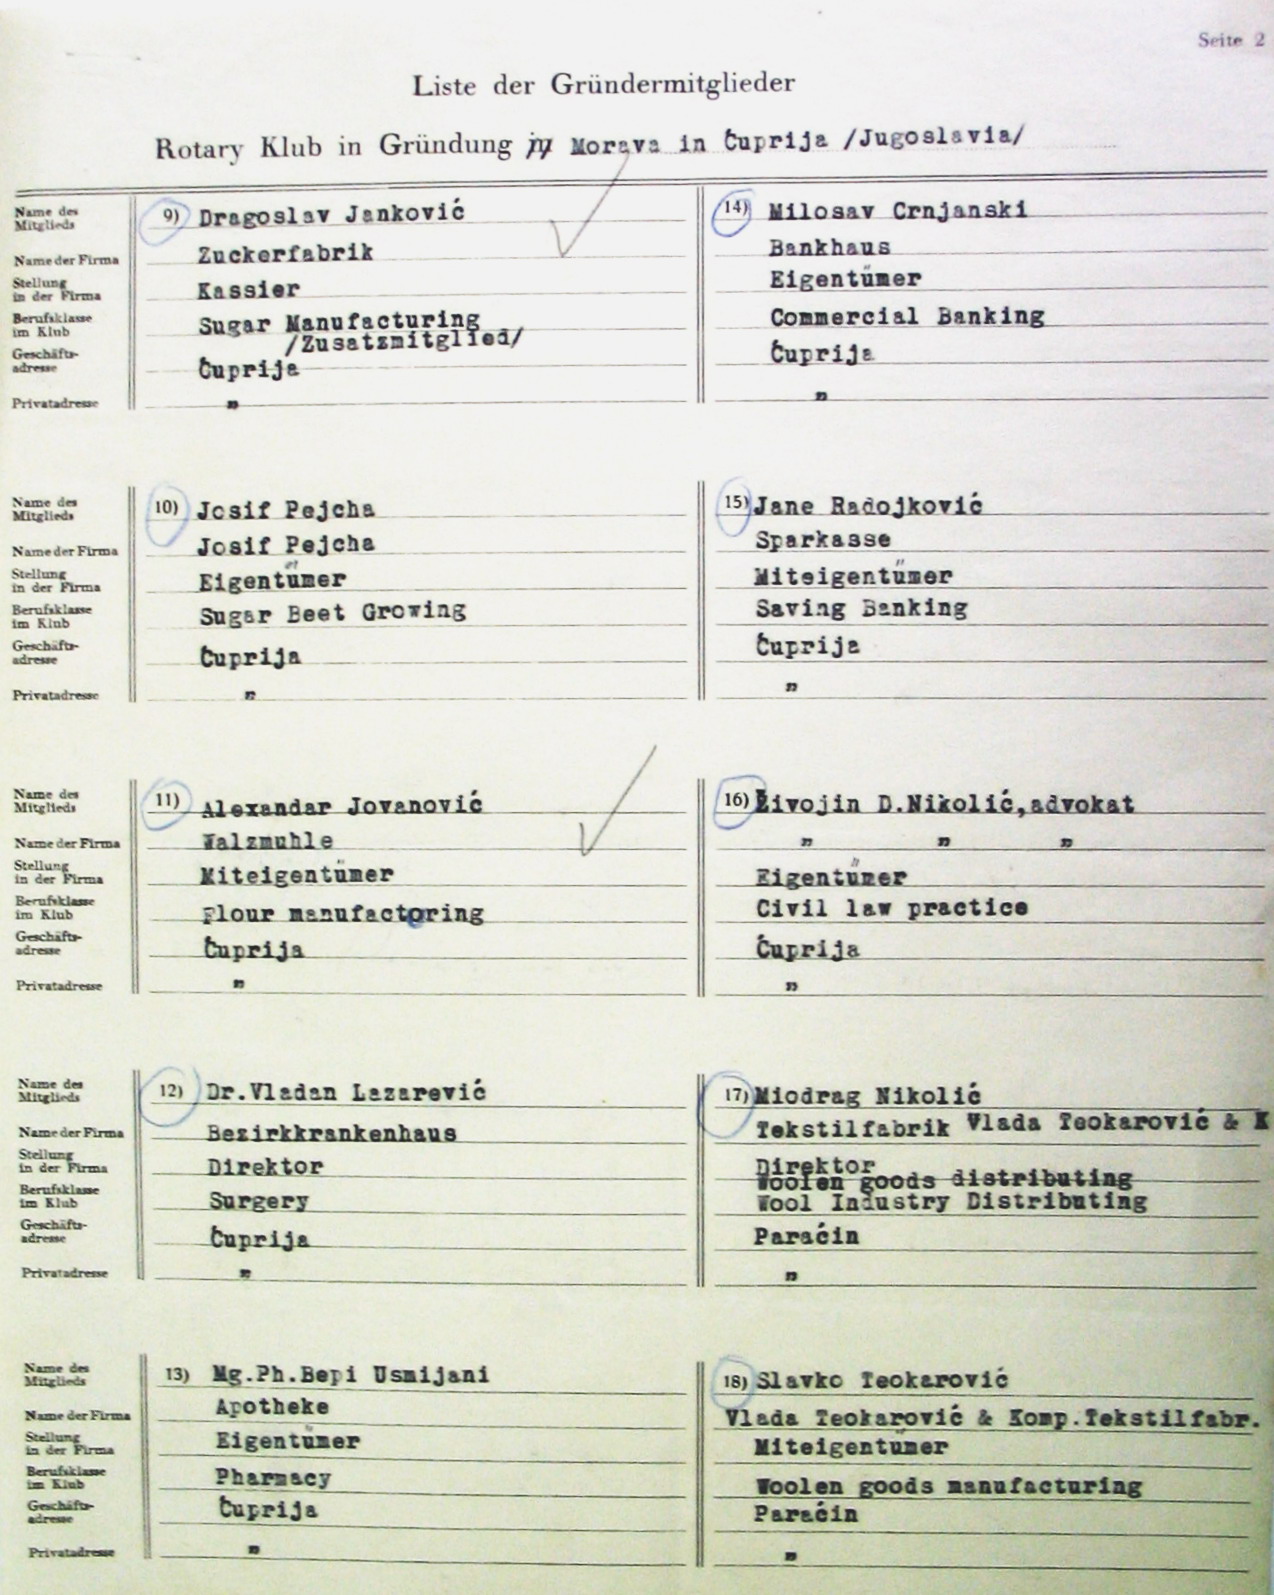 Seite 2
Liste der Gründermitglieder
Rotary Klub in Gründung in Morava in Ćuprija /Jugoslavia/
Name des Mitglieds 9) Dragoslav Janković
Name der Firma Zuckerfabrik
Stellung in der Firma Kassier
Berufsklasse im Klub Sugar Manufacturing
/Zusatzmitglied/
Geschäfts-adresse Ćuprija
Privatadresse "
14) Milosav Crnjanski
Bankhaus
Eigentümer
Commercial Banking
Ćuprija
"
Name des Mitglieds 10) Josif Pejcha
Name der Firma Josif Pejcha
Stellung in der Firma Eigentümer
Berufsklasse im Klub Sugar Beet Growing
Geschäfts-adresse Ćuprija
Privatadresse "
15) Jane Radojković
Sparkasse
Miteigentümer
Saving Banking
Ćuprija
"
Name des Mitglieds 11) Alexandar Jovanović
Name der Firma Walzmuhle
Stellung in der Firma Miteigentümer
Berufsklasse im Klub Flour manufactoring
Geschäfts-adresse Ćuprija
Privatadresse "
16) Živojin D.Nikolić,advokat
" " "
Eigentümer
Civil law practice
Ćuprija
"
Name des Mitglieds 12) Dr.Vladan Lazarević
Name der Firma Bezirkkrankenhaus
Stellung in der Firma Direktor
Berufsklasse im Klub Surgery
Geschäfts-adresse Ćuprija
Privatadresse "
17) Miodrag Nikolić
Tekstilfabrik Vlada Teokarović & K
Direktor
Woolen goods distributing
Wool Industry Distributing
Paraćin
"
Name des Mitglieds 13) Mg.Ph.Bepi Usmijani
Name der Firma Apotheke
Stellung in der Firma Eigentümer
Berufsklasse im Klub Pharmacy
Geschäfts-adresse Ćuprija
Privatadresse "
18) Slavko Teokarović
Vlada Teokarović & Komp.Tekstilfabr.
Miteigentümer
Woolen goods manufacturing
Paraćin
"